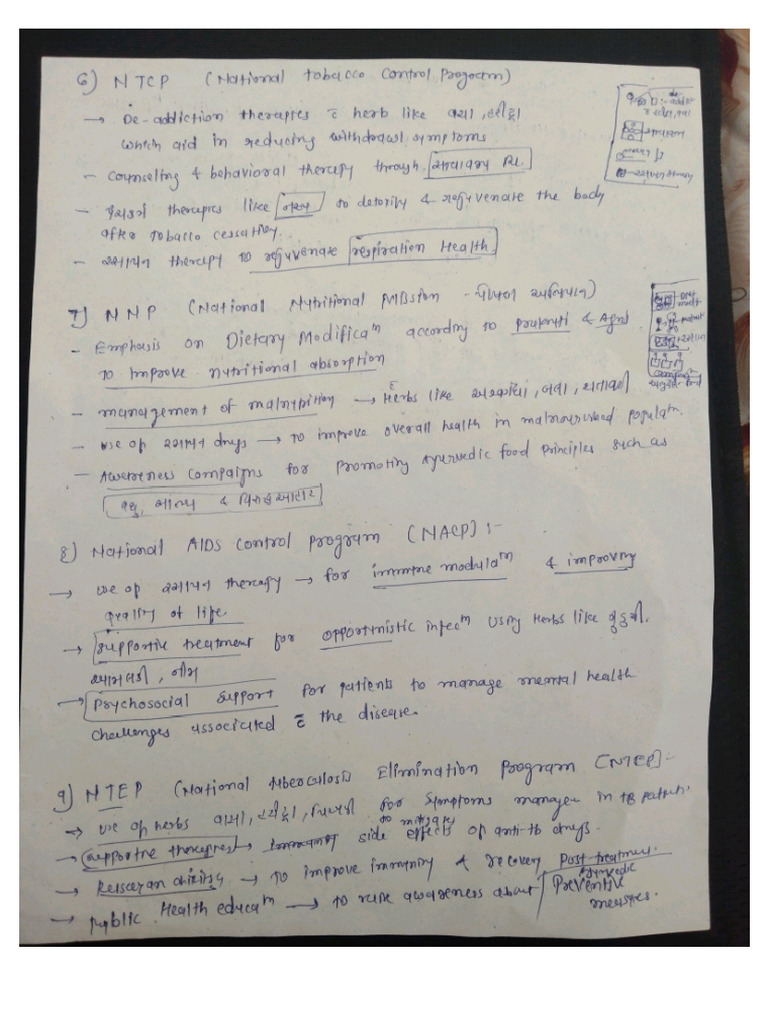 6) NTCP (National Tobacco Control Program)
→ De-addiction therapies c̄ herb like વચા, હરીદ્રા
which aid in reducing withdrawl symptoms
- Counselling & behavioral therapy through સત્વાવજય
- therapies like નસ્ય to detoxify & rejuvenate the body
after tobacco cessation.
- રસાયન therapy to rejuvenate respiration Health.
7) NNP (National Nutritional Mission - પોષણ અભિયાન)
- Emphasis on Dietary Modificaⁿ according to prakruti & Agni
to improve nutritional absorption
- management of malnutrition → Herbs like અશ્વગંધા, બલા, શતાવરી
- use of રસાયન drugs → to improve overall health in malnourished populaⁿ.
- Awareness campaigns for promoting Ayurvedic food principles such as
પથ્ય, સાત્મ્ય & વિરુદ્ધ આહાર
8) National AIDS Control Program (NACP) :-
→ use of રસાયન therapy → for immune modulaⁿ & improving
quality of life.
→ supportive treatment for opportunistic infecⁿ using Herbs like ગુડુચી,
આમલકી, નીમ
→ Psychosocial support for patients to manage mental health
challenges associated c̄ the disease.
9) NTEP (National tuberculosis Elimination Program (NTEP) :-
→ use of herbs વાસા, હરીદ્રા, પિપ્પલી for symptoms manage in TB patients
→ supportive therapies → to mitigate side effects of anti-tb drugs.
→ → to improve immunity & recovery post-treatment.
→ public Health educaⁿ → to raise awareness about Ayurvedic Preventive
measures.